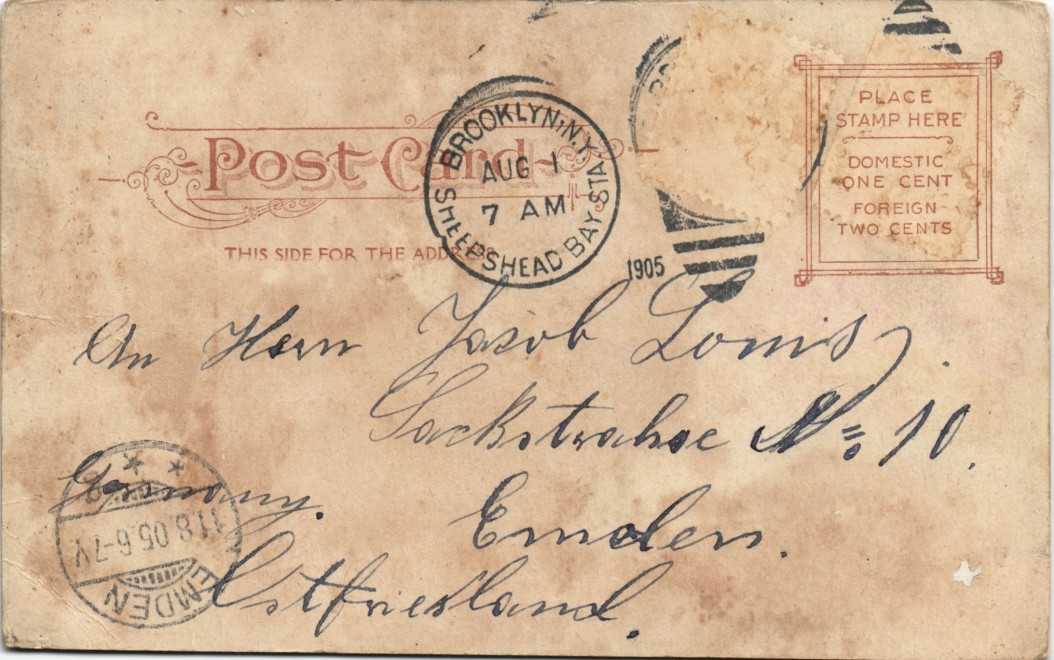 Post Card
THIS SIDE FOR THE ADDRESS
BROOKLYN, N.Y.
AUG 1
7 AM
SHEEPSHEAD BAY STA.
1905
PLACE
STAMP HERE
DOMESTIC
ONE CENT
FOREIGN
TWO CENTS
An Herrn Jacob Louis,
Sackstrahse No: 10.
Germany. Emden.
Ostfriesland.
11.8.05.6-7V
EMDEN